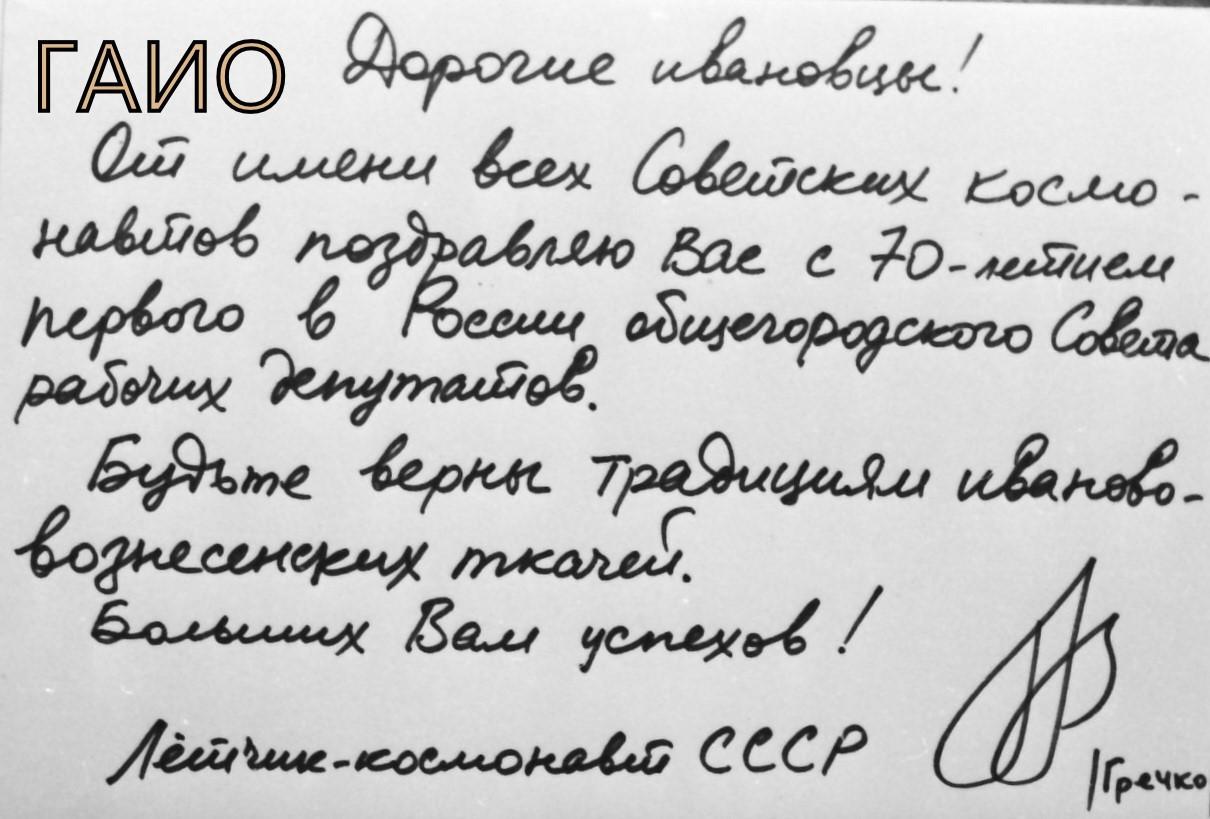 ГАИО
Дорогие ивановцы!
От имени всех Советских космо-
навтов поздравляю Вас с 70-летием
первого в России общегородского Совета
рабочих депутатов.
Будьте верны традициям иваново-
вознесенских ткачей.
Больших Вам успехов!
Лётчик-космонавт СССР
/Гречко